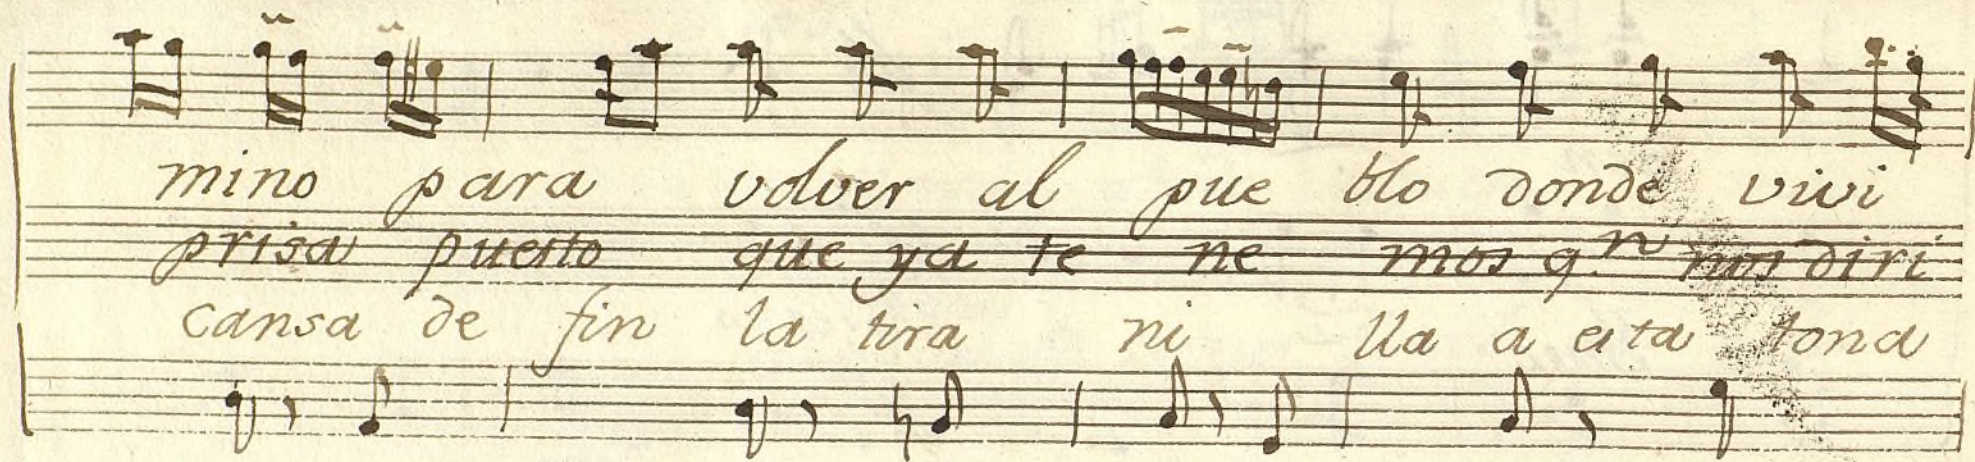 mino para volver al pue blo donde vivi
prisa puesto que ya te ne mos q.n nos diri
cansa de fin la tira ni lla a esta tona